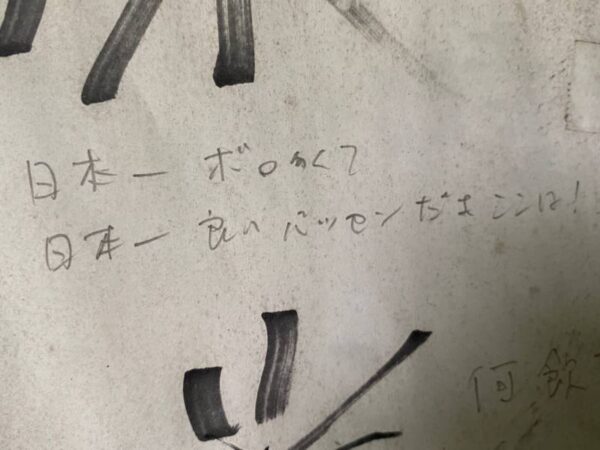 日本一 ボロくて
日本一 良い バッセン だよ ココは!
何飲